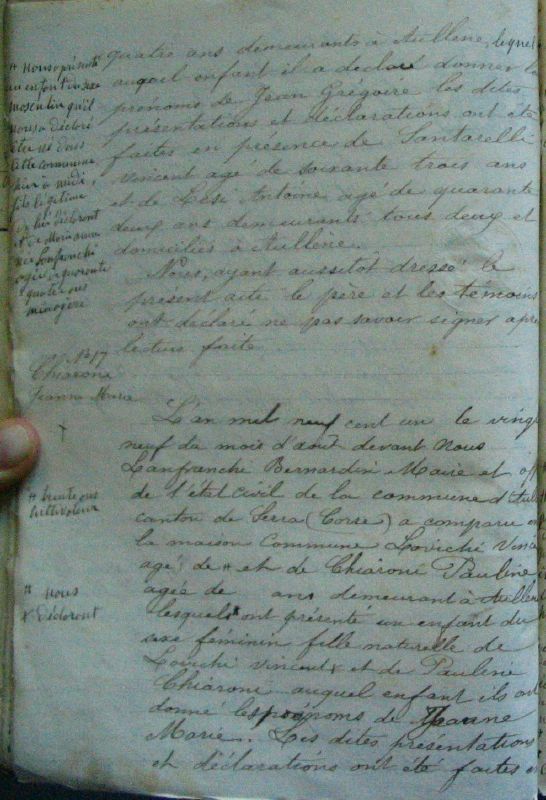 quatre ans demeurants à Aullène, lequel
auquel enfant il a déclaré donner les
prénoms de Jean Grégoire les dites
présentations et déclarations ont été
faites en présence de Santarelli
Vincent agé de soixante trois ans
et de Lesi Antoine agé de quarante
deux ans demeurants tous deux et
domiciliés à Aullène.
Nous, ayant aussitot dressé le
présent acte le père et les témoins
ont déclaré ne pas savoir signer après
lecture faite
nous a présenté
un enfant du sexe
masculin qu'il
nous a déclaré
être né dans
cette commune
hier à midi,
fils légitime
de lui déclarant
et de Maria
née Lanfranchi
agée de quarante
quatre ans
ménagère
N° 17
Chiaroni
Jeanne Marie
L'an mil neuf cent un le vingt
neuf du mois d'août devant nous
Lanfranchi Bernardin Maire et off
de l'état civil de la commune d'Aul
canton de Serra (Corse) a comparu en
la maison commune Lovichi Vince
agé de * et de Chiaroni Pauline
agée de ans demeurant à Aullène
lesquels * ont présenté un enfant du
sexe féminin fille naturelle de
Lovichi Vincent * et de Pauline
Chiaroni auquel enfant ils ont
donné les prénoms de Jeanne
Marie. Les dites présentations
et déclarations ont été faites en
* trente ans
cultivateur
* nous
* déclarant